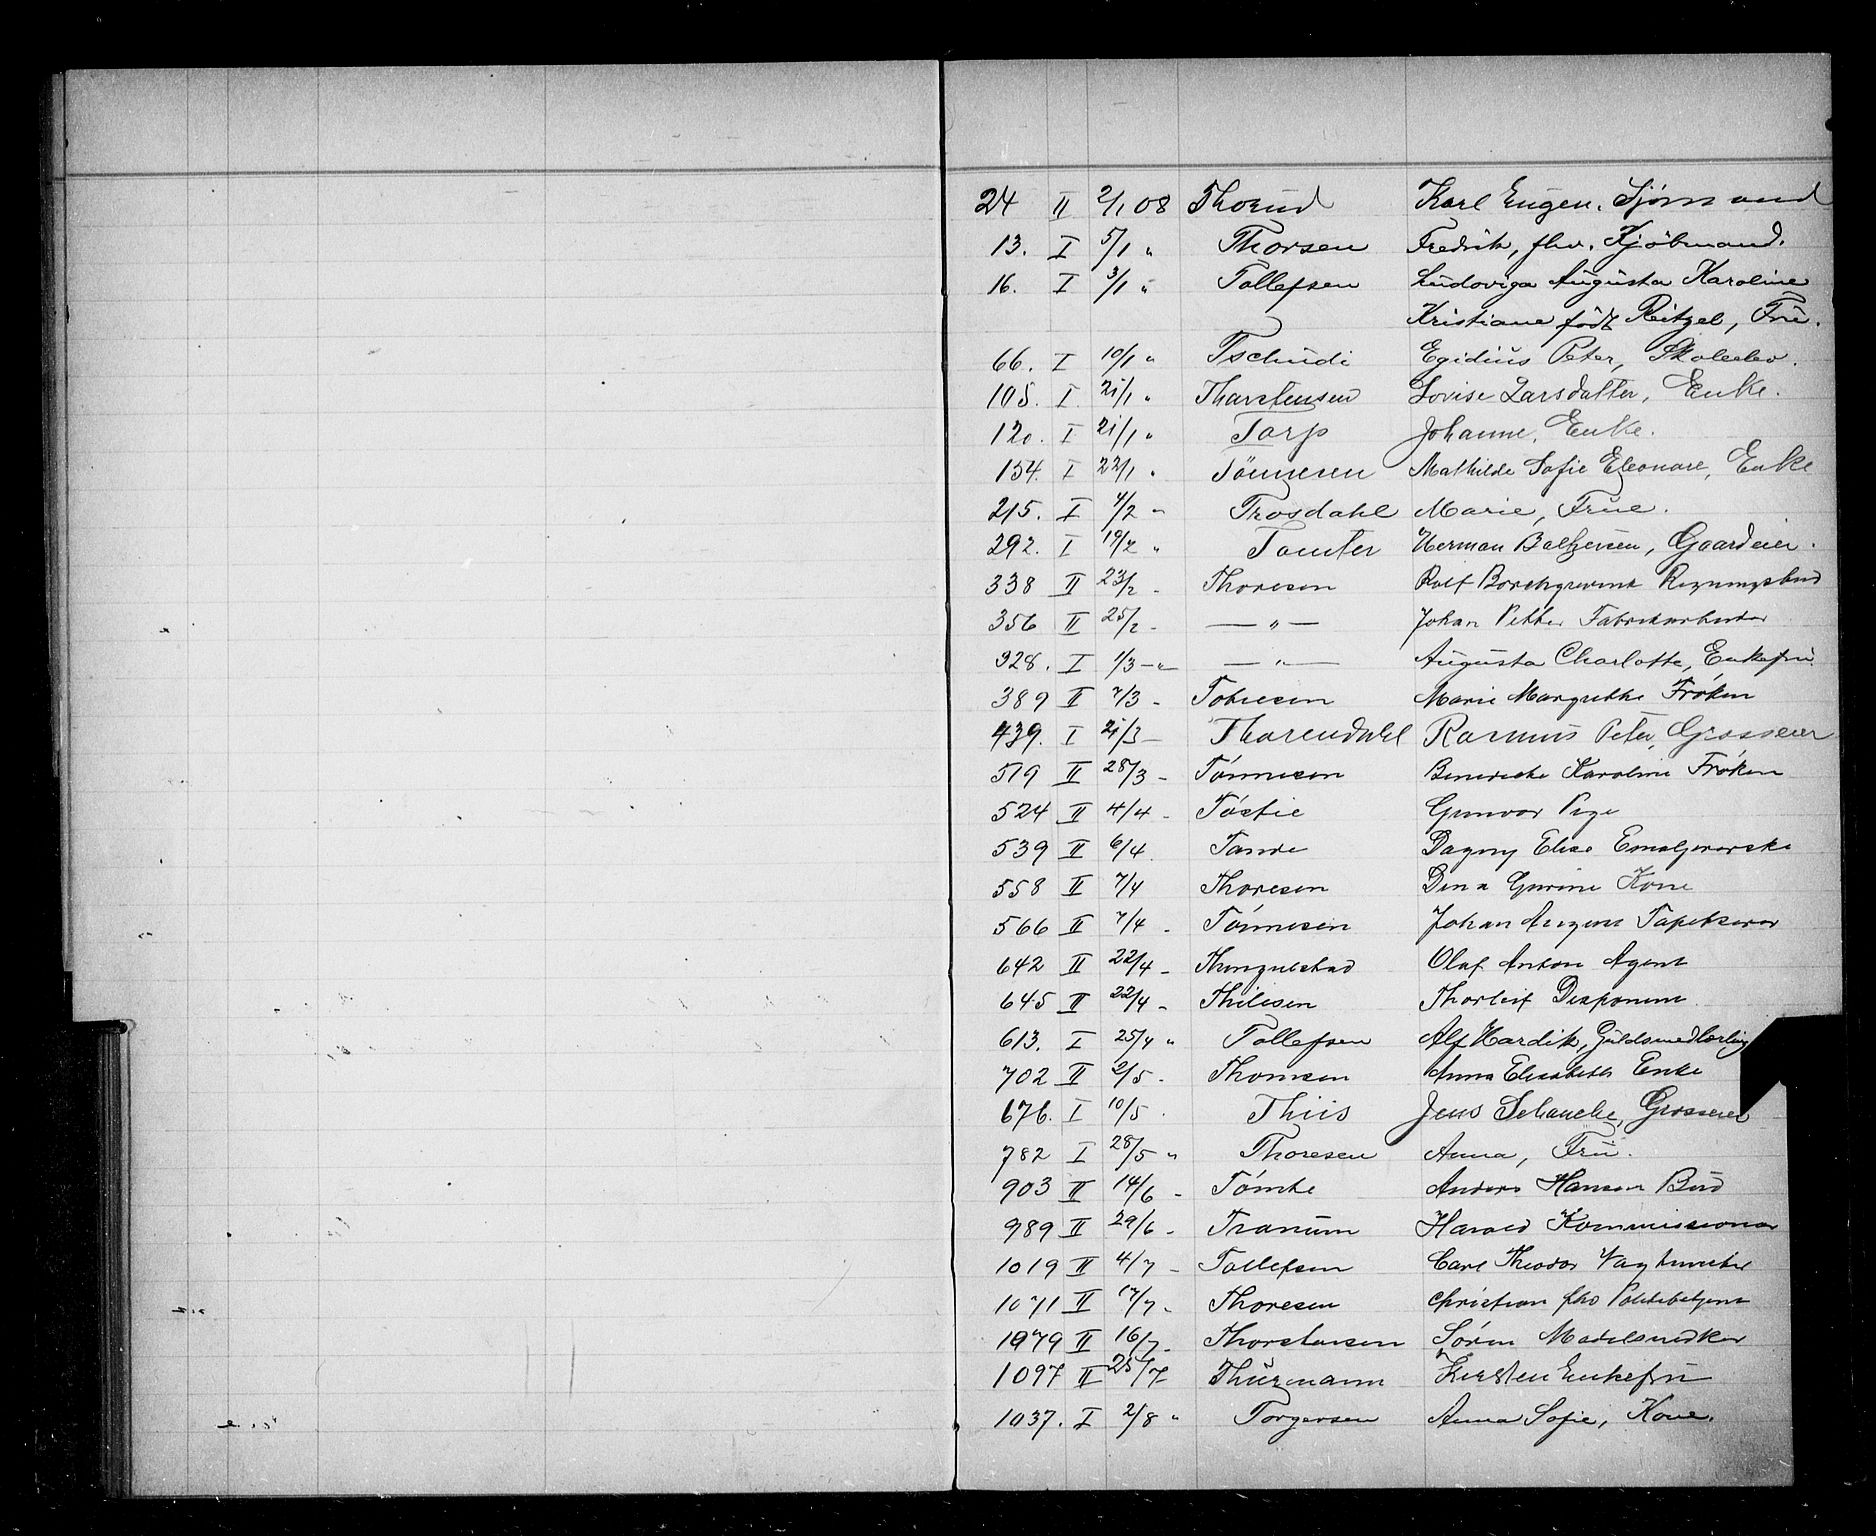 24 II 2/1 08 Thorud Karl Eugen. Sjømand
13. I 5/1 " Thorsen Fredrik, fhv. Kjöbmand.
16. I 3/1 " Tollefsen Ludoviga Augusta Karoline
Kristiane född Reitzel, Frü.
66. I 10/1 " Tschudi Egidius Peter,
105. I 21/1 " Thorstensen Lovise Larsdatter, Enke.
120. I 21/1 " Torp Johanne, Enke.
154. I 22/1 " Tönnesen Mathilde Sofie Eleonore, Enke
215. I 4/2 " Trosdahl Marie, Frue.
292. I 19/2 " Tomter Herman Baltzersen, Gaardeier.
338 II 23/2 - Thoresen Rolf Borchgrevink Regningsbud
356 II 25/2 - — " — Johan Petter Fabrikarbeider
328. I 1/3 - " — — " — Augusta Charlotte, Enkefru.
389 II 7/3 - Tobiesen Marie Margrethe Frøken
439. I 21/3 — Thorendahl Rasmus Peter, Grosserer
519 II 28/3 - Tønnesen Benedicte Karoline Frøken
524 II 4/4 - Tøstie Gunvor Pige
539 II 6/4 Tande Dagny Elise
558 II 7/4 Thoresen Dina Gurine Kone
566 II 7/4 - Tønnesen Johan August Tapetserer
642 II 22/4 - Thingulstad Olaf Anton Agent
645 II 22/4 - Thilesen Thorleif Disponent
613. I 25/4 " Tollefsen Alf Hardik, Guldsmedlærling
702 II 2/5 - Thomsen Anna Elisabeth Enke
676. I 10/5 . Thiis Jens Schanche, Grosserer
782 I 28/5 " Thoresen Anna, Frü.
903 II 14/6 - Tømte Anders Hansen Bud
989 II 29/6 - Tranum Harald Kommissionær
1019 II 4/7 - Tollefsen Carl Theodor Vagtmester
1071 II 17/7 - Thoresen Christian fhv Politibetjent
1979 II 16/7 - Thorstensen Søren Modelsnedker
1097 II 25/7 Thürmann Kirsten Enkefru
1037. I 2/8 " Torgersen Anna Sofie, Kone.